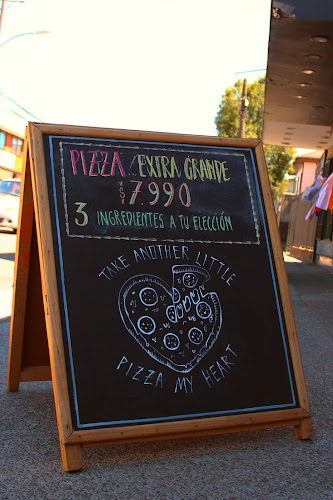 PIZZA EXTRA GRANDE
$7.990
3 INGREDIENTES A TU ELECCIÓN
TAKE ANOTHER LITTLE
PIZZA MY HEART